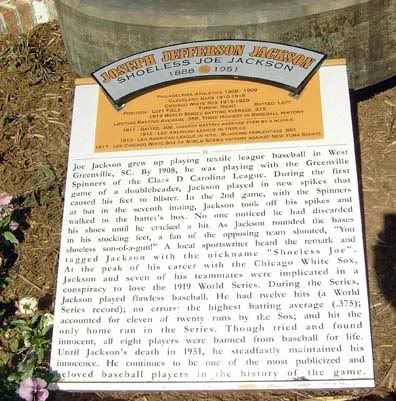 JOSEPH JEFFERSON JACKSON
SHOELESS JOE JACKSON
1888 1951
PHILADELPHIA ATHLETICS 1908 - 1909
CLEVELAND NAPS 1910-1915
CHICAGO WHITE SOX 1915-1920
POSITION: LEFT FIELD THROW: RIGHT BATTED: LEFT
1919 WORLD SERIES BATTING AVERAGE .375
LIFETIME BATTING AVERAGE .356, THIRD HIGHEST IN BASEBALL HISTORY
1911 - BATTED .408, HIGHEST BATTING AVERAGE EVER BY A ROOKIE
1912 - LED AMERICAN LEAGUE IN TRIPLES
1913 - LED AMERICAN LEAGUE IN HITS, SLUGGING PERCENTAGE .551
1917 - LED CHICAGO WHITE SOX TO WORLD SERIES VICTORY AGAINST NEW YORK GIANTS
Joe Jackson grew up playing textile league baseball in West
Greenville, SC. By 1908, he was playing with the Greenville
Spinners of the Class D Carolina League. During the first
game of a doubleheader, Jackson played in new spikes that
caused his feet to blister. In the 2nd game, with the Spinners
at bat in the seventh inning, Jackson took off his spikes and
walked to the batter's box. No one noticed he had discarded
his shoes until he cracked a hit. As Jackson rounded the bases
in his stocking feet, a fan of the opposing team shouted, "You
shoeless son-of-a-gun!" A local sportswriter heard the remark and
tagged Jackson with the nickname "Shoeless Joe".
At the peak of his career with the Chicago White Sox,
Jackson and seven of his teammates were implicated in a
conspiracy to lose the 1919 World Series. During the Series,
Jackson played flawless baseball. He had twelve hits (a World
Series record); no errors; the highest batting average (.375);
accounted for eleven of twenty runs by the Sox; and hit the
only home run in the Series. Though tried and found
innocent, all eight players were banned from baseball for life.
Until Jackson's death in 1951, he steadfastly maintained his
innocence. He continues to be one of the most publicized and
beloved baseball players in the history of the game.